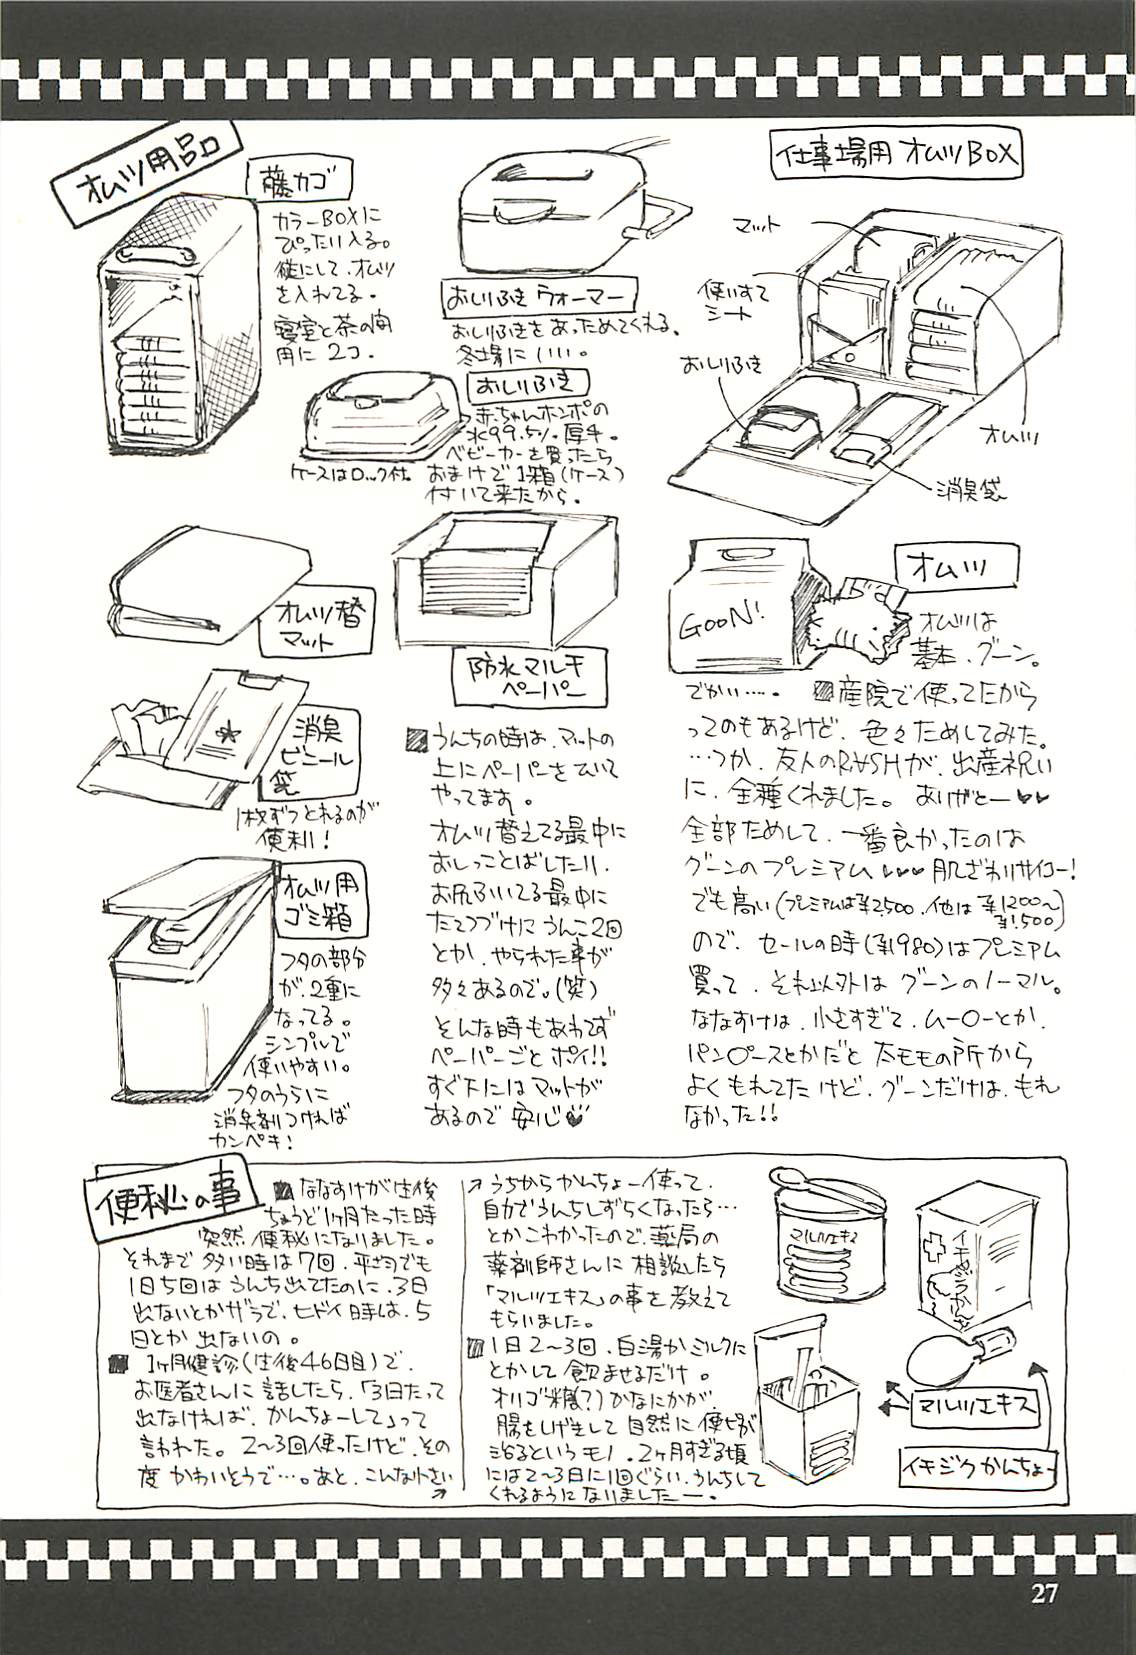 オムツ用品
籐カゴ
カラーBOXに
ぴったり入る。
縦にして、オムツ
を入れてる。
寝室と茶の間
用に2コ。
おしりふきウォーマー
おしりふきをあっためてくれる。
冬場にいい。
おしりふき
赤ちゃんホンポの
水99.5%.厚手。
ベビーカーを買ったら
おまけで1箱(ケース)
付いて来たから。
ケースはロック付。
仕事場用オムツBOX
マット
使いすて
シート
おしりふき
オムツ
消臭袋
オムツ替
マット
防水マルチ
ペーパー
■うんちの時は、マットの
上にペーパーをひいて
やってます。
オムツ替えてる最中に
おしっことばしたり、
お尻ふいてる最中に
たてつづけにうんこ2回
とか、やられた事が
多々あるので。(笑)
そんな時もあわてず
ペーパーごとポイ!!
すぐ下にはマットが
あるので安心♥
消臭
ビニール
袋
1枚ずつとれるのが
便利!
オムツ用
ゴミ箱
フタの部分
が、2重に
なってる。
シンプルで
使いやすい。
フタのうらに
消臭剤つければ
カンペキ!
GooN!
オムツ
オムツは
基本、グーン。
でかい…. ■産院で使ってたから
ってのもあるけど、色々ためしてみた。
…つか、友人のRASHが、出産祝い
に、全種くれました。ありがとー♥♥
全部ためして、一番良かったのは
グーンのプレミアム♥♥♥肌ざわりサイコー!
でも高い(プレミアムは¥2500、他は¥1200〜
¥1,500)
ので、セールの時(¥1980)はプレミアム
買って、それ以外はグーンのノーマル。
ななすけは、小さすぎて、ムー〇ーとか、
パン〇ースとかだと太モモの所から
よくもれてたけど、グーンだけは、もれ
なかった!!
便秘の事
■ななすけが生後
ちょうど1ヶ月たった時
突然便秘になりました。
それまで多い時は7回、平均でも
1日5回はうんち出てたのに、3日
出ないとかザラで、ヒドイ時は、5
日とか出ないの。
■1ヶ月健診(生後46日目)で、
お医者さんに話したら、「3日たって
出なければ、かんちょーして」って
言われた。2〜3回使ったけど、その
度かわいそうで…。あと、こんな小さい
うちからかんちょー使って、
自力でうんちしずらくなったら…
とかこわかったので、薬局の
薬剤師さんに相談したら
「マルツエキス」の事を教えて
もらいました。
■1日2〜3回、白湯かミルクに
とかして飲ませるだけ。
オリゴ糖(?)かなにかが、
腸をしげきして自然に便ぴが
治るというモノ。2ヶ月すぎる頃
には2〜3日に1回ぐらい、うんちして
くれるようになりましたー。
マルツエキス
イチジクかんちょ
マルツエキス
イチジクかんちょー
27